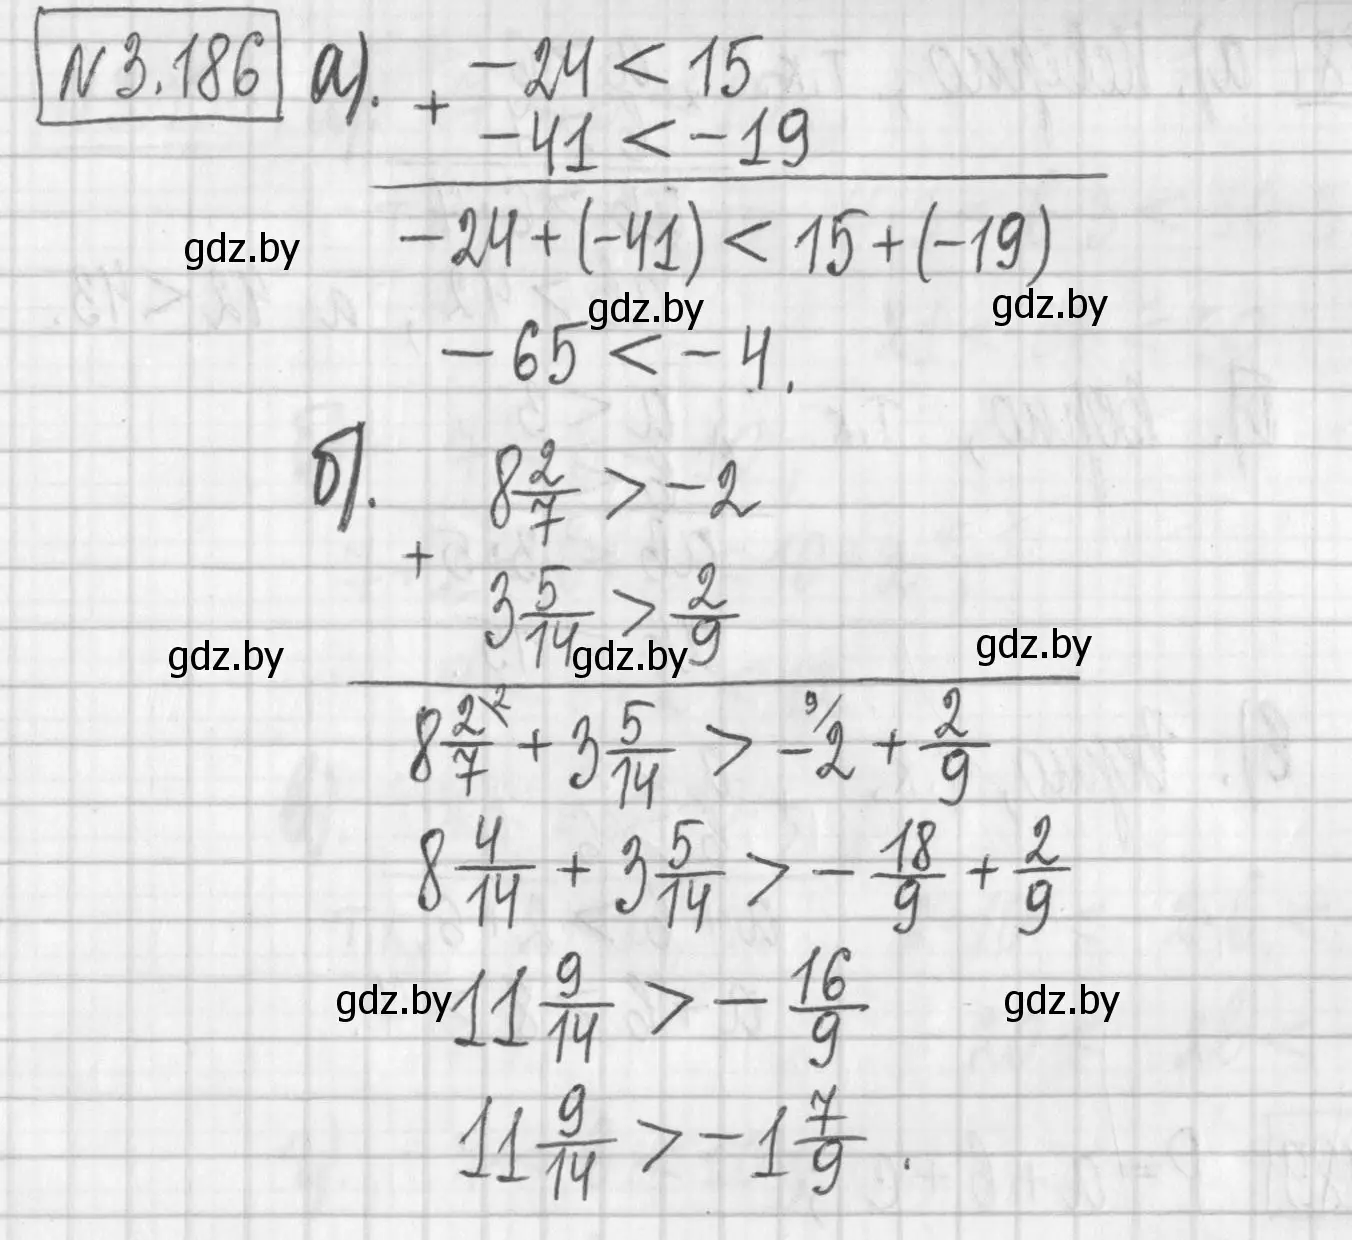 N 3.186 а). -24 < 15
+
-41 < -19
gdz.by -24 + (-41) < 15 + (-19)
gdz.by gdz.by
-65 < -4.
б). 8 2/7 > -2
+
3 5/14 > 2/9
gdz.by gdz.by gdz.by
8 2/7 \2 + 3 5/14 > 9/ -2 + 2/9
8 4/14 + 3 5/14 > - 18/9 + 2/9
gdz.by 11 9/14 > - 16/9 gdz.by
11 9/14 > -1 7/9.